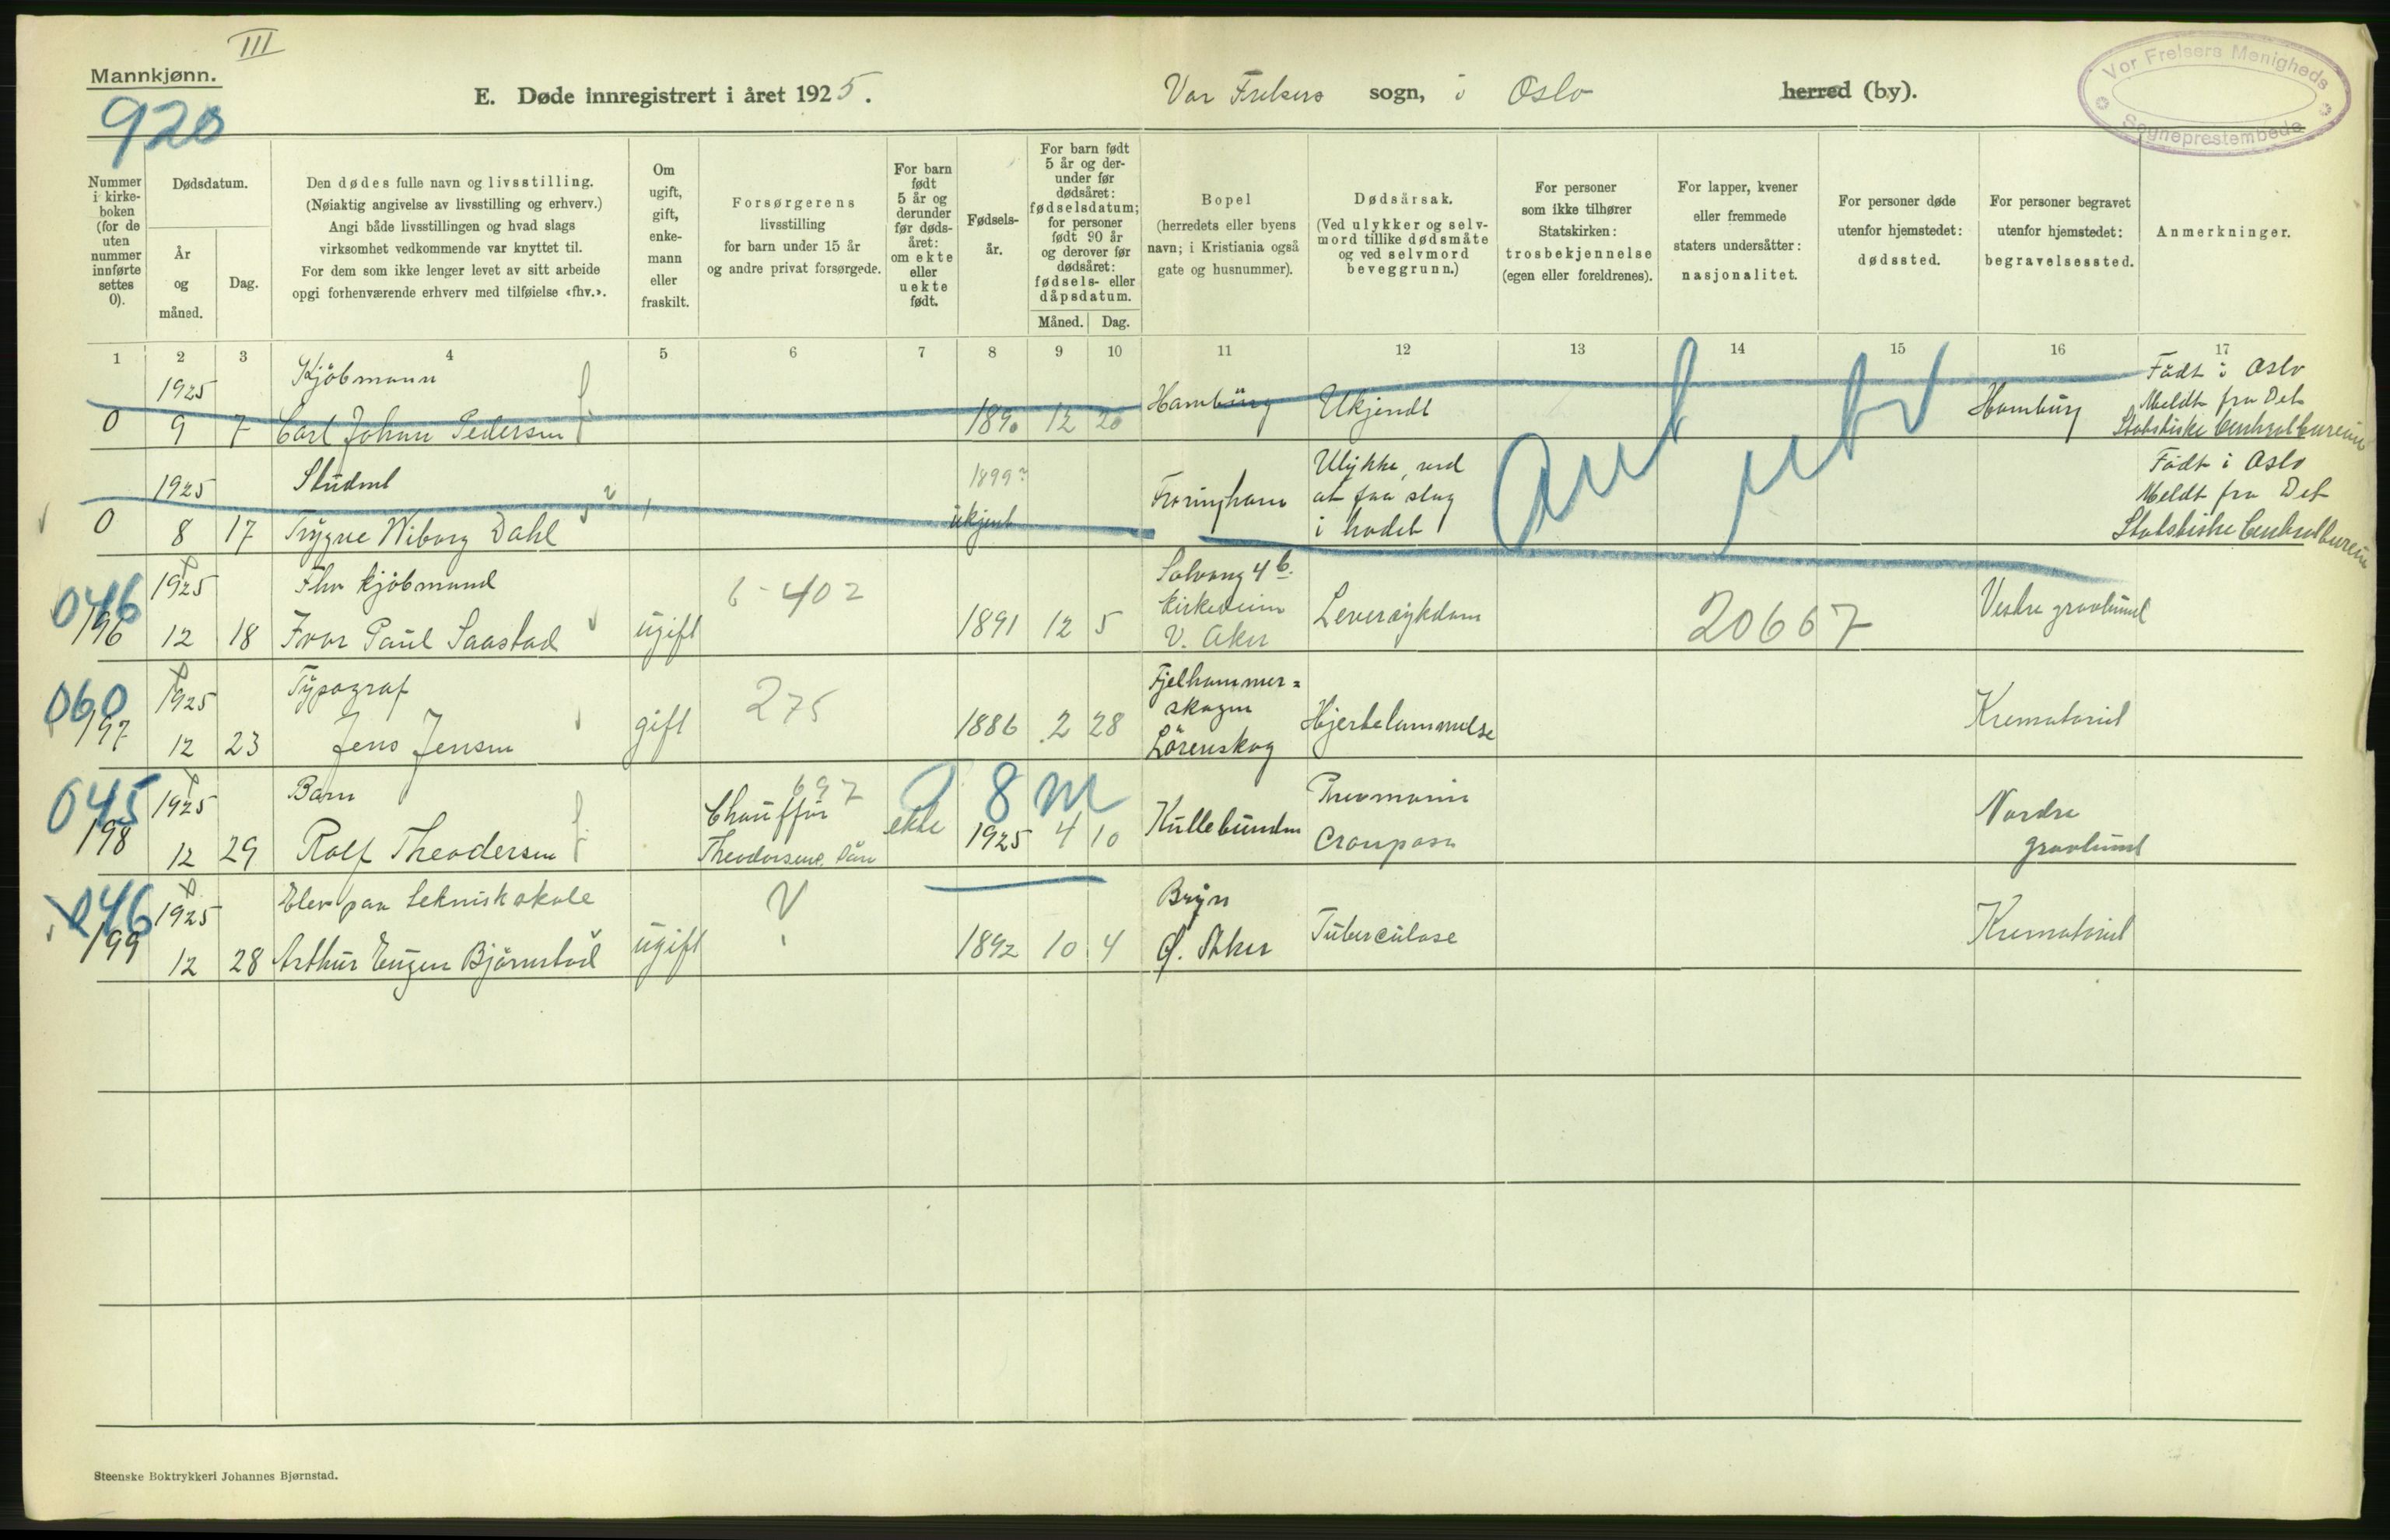 III
Mannkjønn.
920
E. Døde innregistrert i året 1925.
Vor Frelsers sogn, i Oslo herred (by).
Vor Frelsers Menigheds
Sogneprestembede
Nummer i kirkeboken (for de uten nummer innførte settes 0).
Dødsdatum.
År og måned.
Dag.
Den dødes fulle navn og livsstilling.
(Nøiaktig angivelse av livsstilling og erhverv.)
Angi både livsstillingen og hvad slags
virksomhet vedkommende var knyttet til.
For dem som ikke lenger levet av sitt arbeide
opgi forhenværende erhverv med tilføielse «fhv.».
Om ugift, gift, enkemann eller fraskilt.
Forsørgerens
livsstilling
for barn under 15 år
og andre privat forsørgede.
For barn født 5 år og derunder før dødsåret: om ekte eller uekte født.
Fødselsår.
For barn født 5 år og derunder før dødsåret: fødselsdatum; for personer født 90 år og derover før dødsåret: fødsels- eller dåpsdatum.
Måned. Dag.
Bopel
(herredets eller byens
navn; i Kristiania også
gate og husnummer).
Dødsårsak.
(Ved ulykker og selvmord tillike dødsmåte
og ved selvmord
beveggrunn.)
For personer
som ikke tilhører
Statskirken:
trosbekjennelse
(egen eller foreldrenes).
For lapper, kvener
eller fremmede
staters undersåtter:
nasjonalitet.
For personer døde
utenfor hjemstedet:
dødssted.
For personer begravet
utenfor hjemstedet:
begravelsessted.
Anmerkninger.
1 2 3 4 5 6 7 8 9 10 11 12 13 14 15 16 17
1925 Kjöbmann Födt i Oslo
0 9 7 Carl Johan Pedersen 1890 12 20 Hamburg Ukjendt Hamburg Meldt fra Det
Statistiske Centralbureau
1925 Student 1899? Ulykke, ved Födt i Oslo
0 8 17 Trygve Wiborg Dahl ukjent at faa slag Meldt fra Det
i hodet Statistiske Centralbureau
046 1925 Fhv kjöbmand 6-402 Solvang 4 b.
196 12 18 Ivar Paul Saastad ugift 1891 12 5 Kirkeveien V. Aker Leversykdom 20667 Vestre gravlund
060 1925 Typograf 275 Fjelhammer=
197 12 23 Jens Jensen gift 1886 2 28 skogen Lörenskog Hjertelammelse Krematoriet
045 1925 Barn 697 8 m
198 12 29 Rolf Theodorsen Chaufför Theodorsens sön ekte 1925 4 10 Kullebunden Pneumonia crouposa Nordre gravlund
046 1925 Elev paa tekniskskole V Bryn
199 12 28 Arthur Eugen Björnstad ugift 1892 10 4 Ö. Aker Tuberculose Krematoriet
Steenske Boktrykkeri Johannes Bjørnstad.